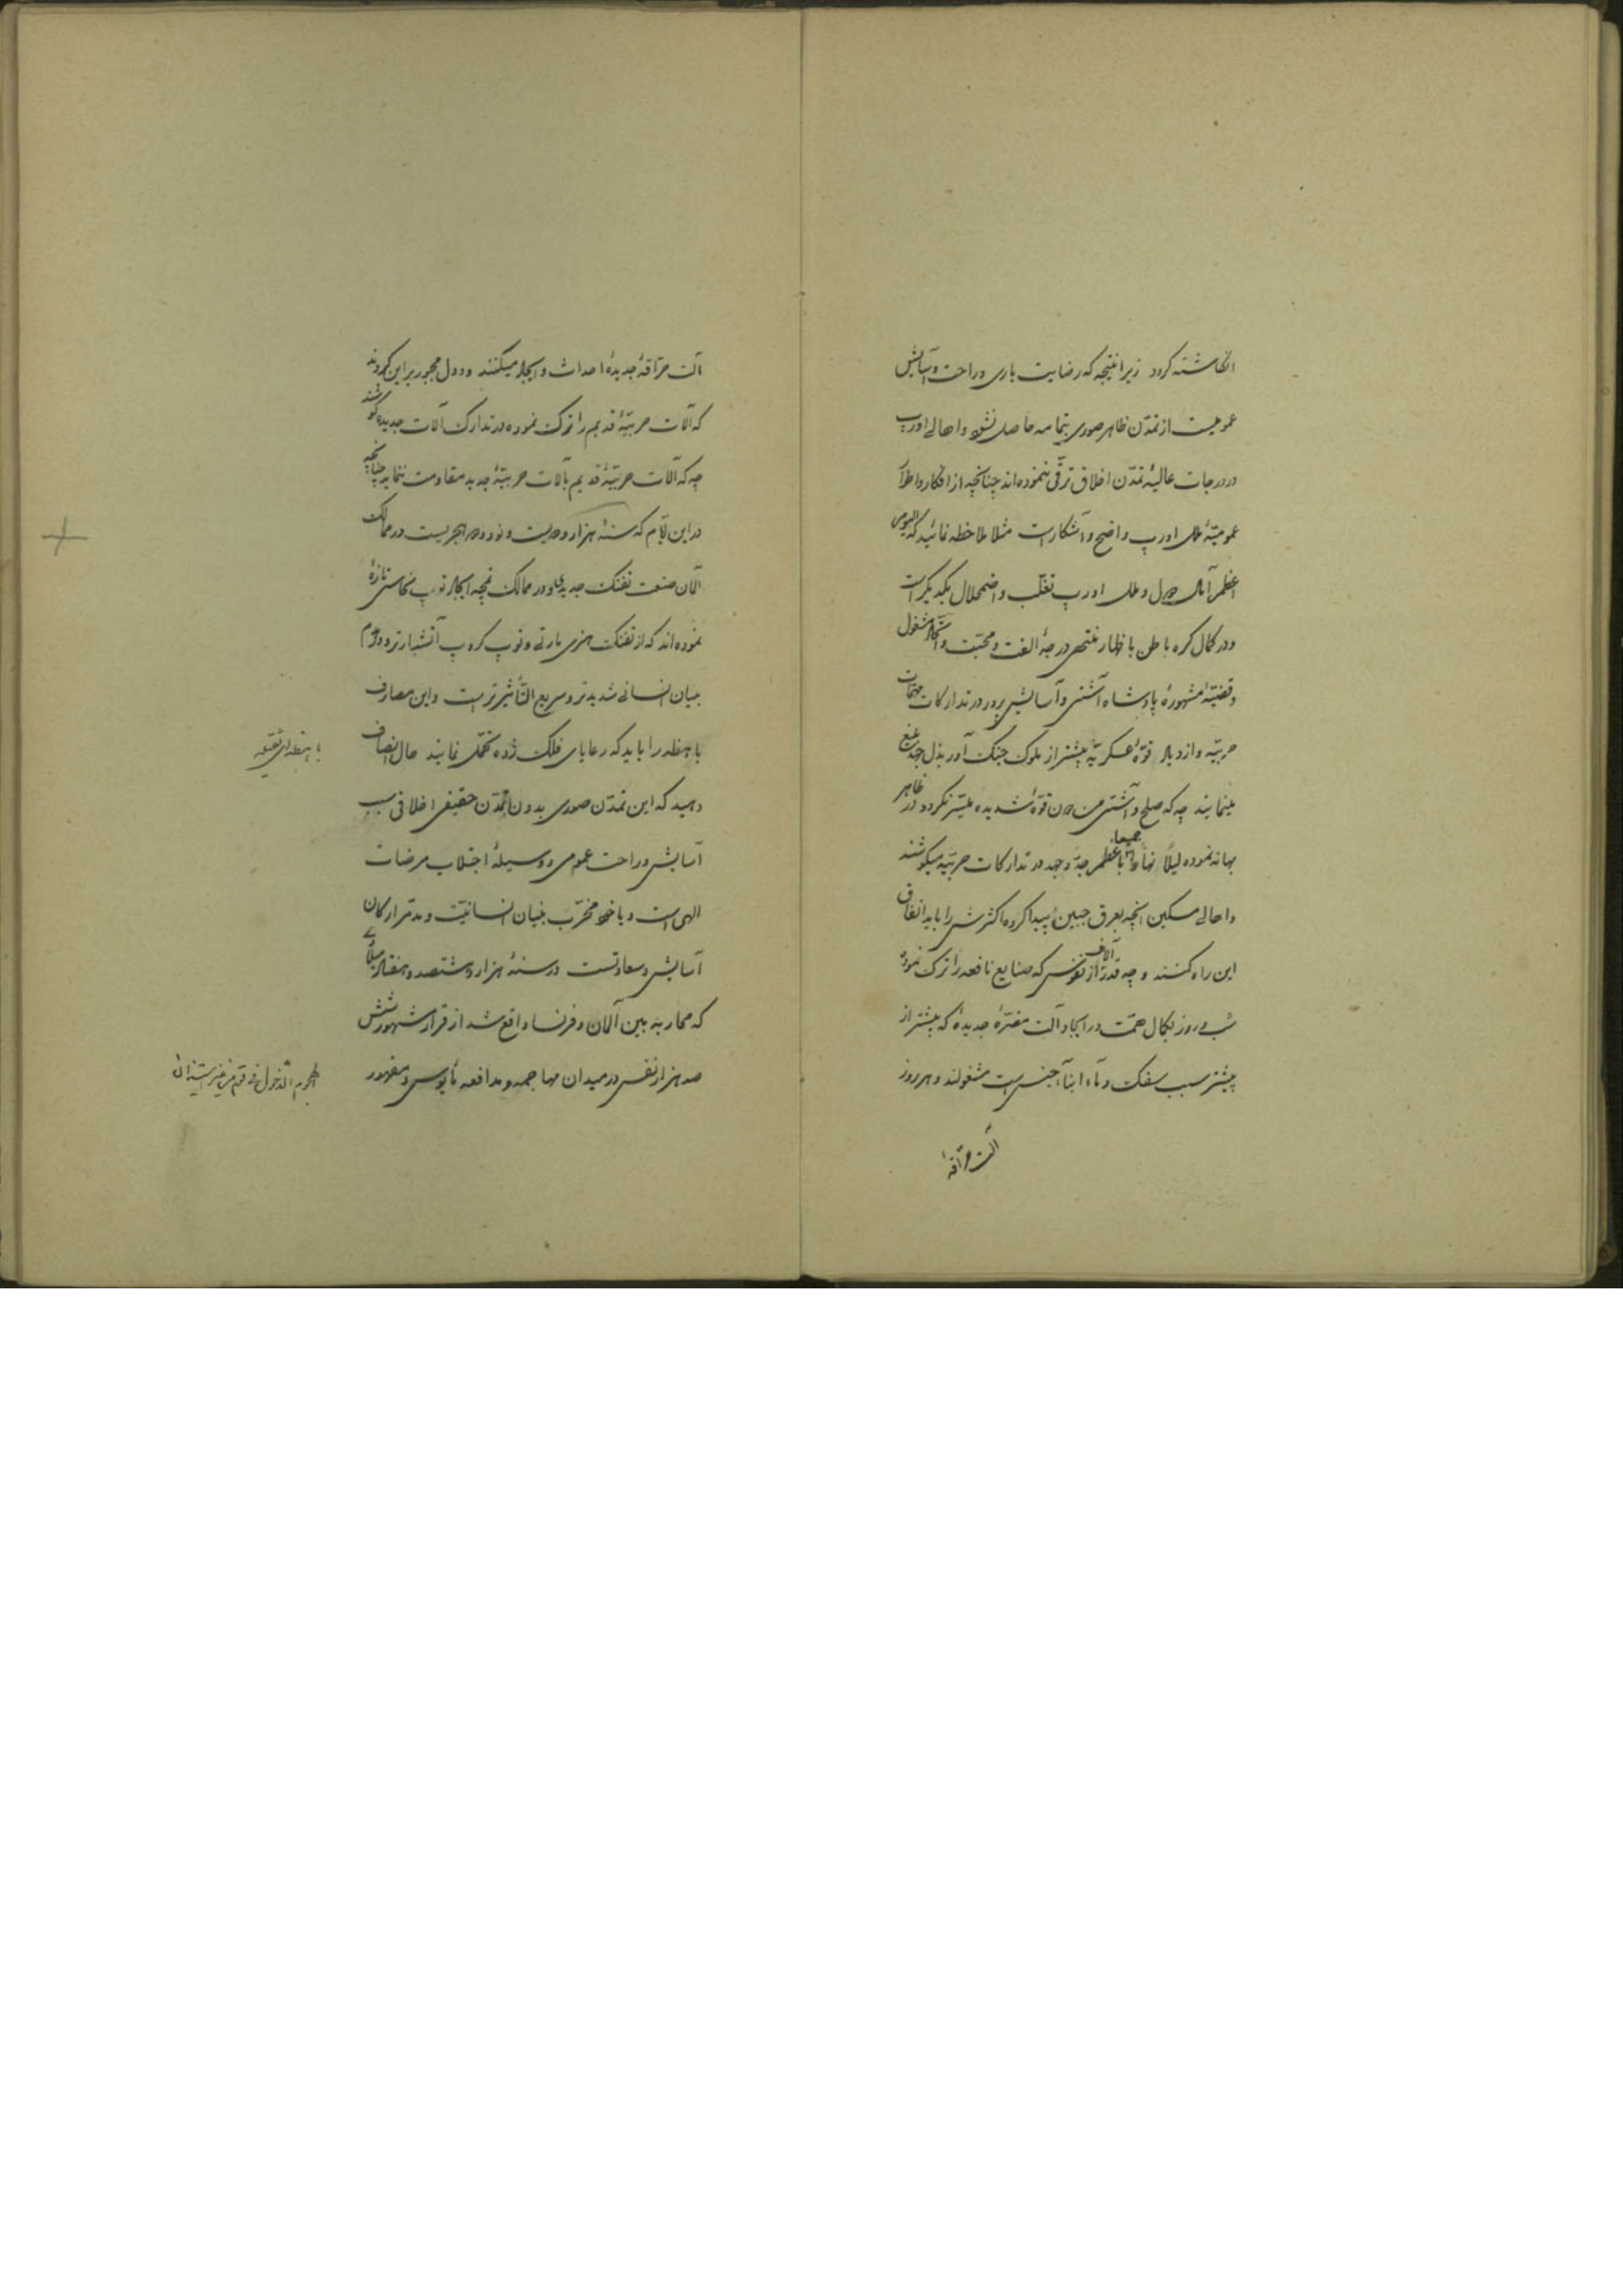 انگاشته گردد زیرا نتیجه که رضایت باری و راحت و آسایش
عمومیست از تمدّن ظاهر صوری بتمامه حاصل نشود و اهالی اورپ
در درجات عالیهٔ تمدّن اخلاق ترقّی ننموده‌اند چنانچه از افکار و اطوار
عمومیّهٔ ملل اورپ واضح و آشکار است مثلا ملاحظه نمائید که الیوم
اعظم آمال دول و ملل اورپ تغلّب و اضمحلال یکدیگر است
و در کمال کره باطن باظهار منتهی درجهٔ الفت و محبّت و اتّحاد مشغول
و قضیّهٔ مشهورهٔ پادشاه آشتی و آسایش پرور در تدارکات مهمّات
حربیّه و ازدیاد قوّهٔ عسکریّه بیشتر از ملوک جنگ آور بذل جهد بلیغ
مینمایند چه که صلح و آشتی من دون قوّهٔ شدیده میسّر نگردد در ظاهر
بهانه نموده لیلًا نهاراً جمیعا باعظم جدّ و جهد در تدارکات حربیّه میکوشند
و اهالی مسکین آنچه بعرق جبین پیدا کرده اکثرش را باید انفاق
این راه کنند و چه قدر آلاف از نفوس که صنایع نافعه را ترک نموده
شب و روز بکمال همّت در ایجاد آلت مضرّهٔ جدیدهٔ که بیشتر از
پیشتر سبب سفک دمآء ابنآء جنس است مشغولند و هر روز
آلت حرّاقهٔ
آلت حرّاقهٔ جدیدهٔ احداث و ایجاد میکنند و دول مجبور بر این گردند
که آلات حربیّهٔ قدیم را ترک نموده در تدارک آلات جدیده کوشند
چه که آلات حربیّهٔ قدیم بآلات حربیّهٔ جدید مقاومت ننماید چنانچه
در این ایّام که سنهٔ هزار و دویست و نود و دو هجریست در ممالک
آلمان صنعت تفنگ جدیدی و در ممالک نمچه ایجاد توپ نحاس تازهٔ
نموده‌اند که از تفنگ هنری مارتی و توپ کروپ آتشبارتر و در هدم
بنیان انسانی شدیدتر و سریع التّأثیرتر است و این مصارف
باهظه را باید که رعایای فلک زده تحمّل نمایند حال انصاف
باهظه ای ثقیله
دهید که این تمدّن صوری بدون تمدّن حقیقی اخلاقی سبب
آسایش و راحت عمومی و وسیلهٔ اجتلاب مرضات
الهی است و یا خود مخرّب بنیان انسانیّت و مدمّر ارکان
آسایش و سعادتست در سنهٔ هزار و هشتصد و هفتاد میلادی
که محاربه بین آلمان و فرنسا واقع شد از قرار مشهور شش
صد هزار نفس در میدان مهاجمه و مدافعه مأیوس و مقهور